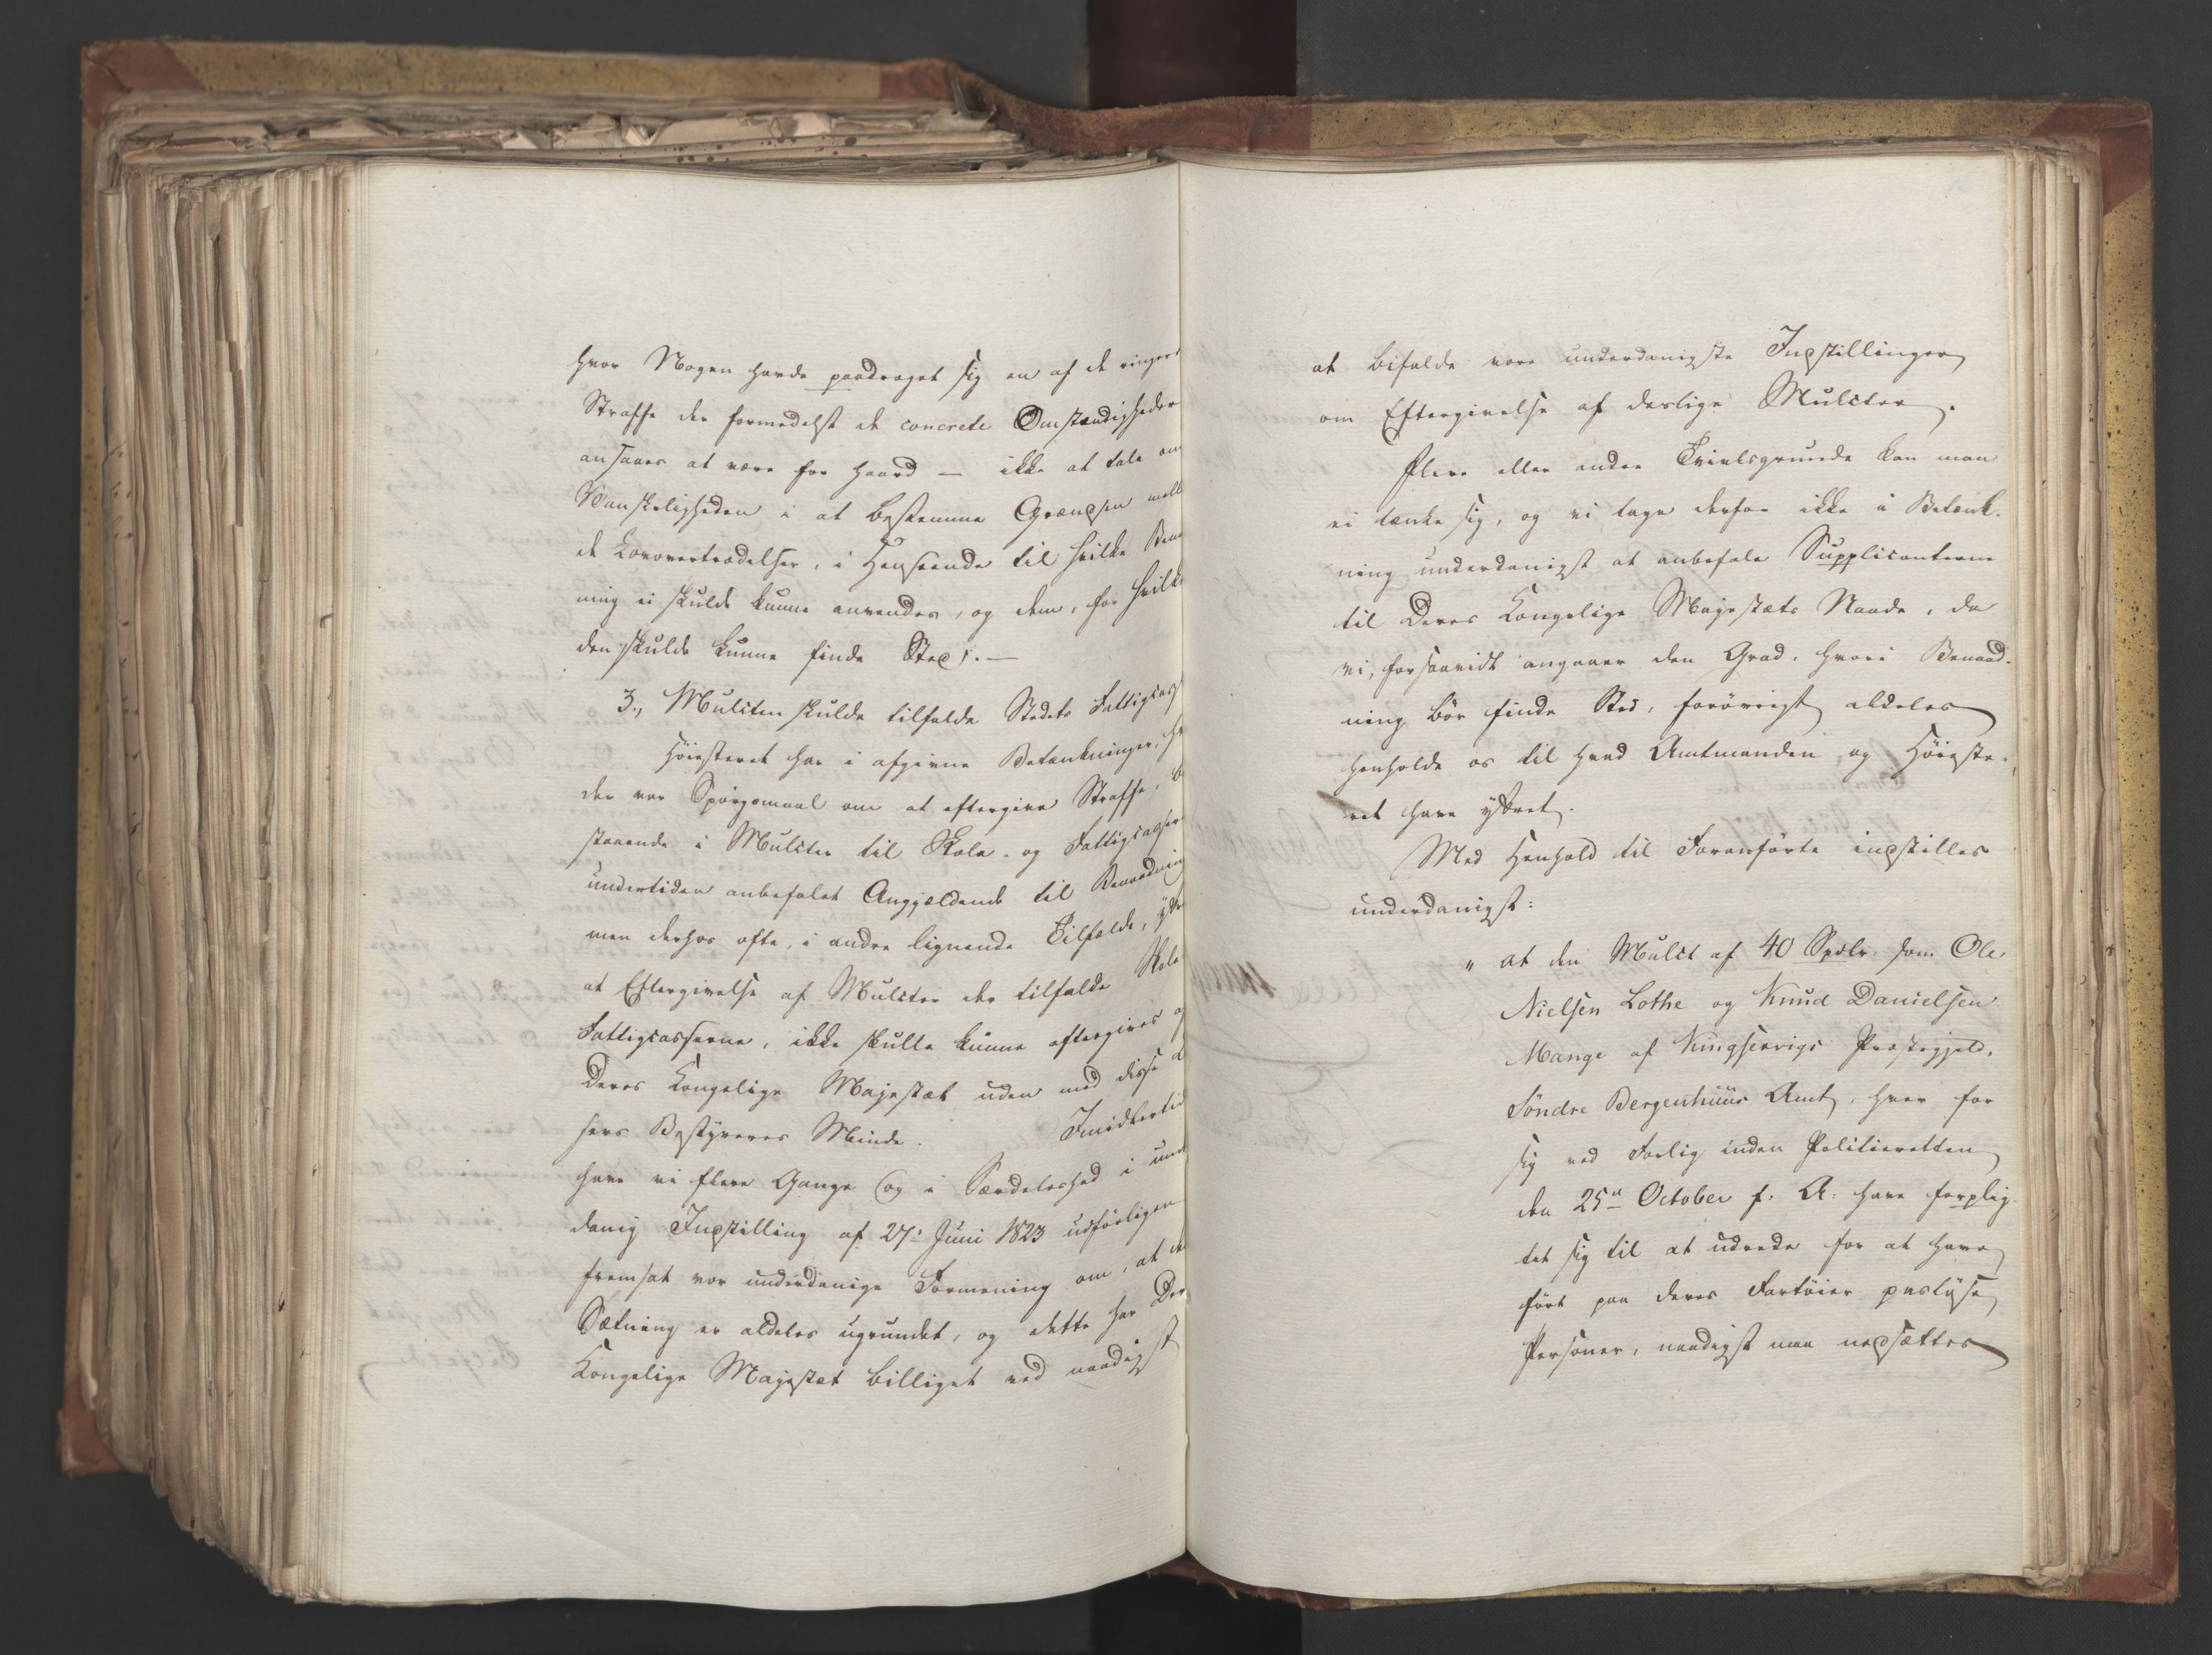 hvor Nogen havde paadraget sig en af de ringere
Straffe der formedelst de concrete Omstændigheder
ansaaes at være for haard — ikke at tale om
Vanskeligheden i at bestemme Grændsen mell
de Lovovertrædelser, i Henseende til hvilke Ben
ning ei skulde kunne anvendes, og dem, for hvilke
den skulde kunne finde Sted. —
3., Mulcten skulde tilfalde Stedets Fattigcasse
Høiesteret har i afgivne Betænkninger, h
der var Spørgsmaal om at eftergive Straffe, b
staaende i Mulcter til Skole- og Fattigcasser
undertiden anbefalet Angjældende til Benaadning
men derhos ofte, i andre lignende Tilfælde, yttr
at Eftergivelse af Mulcter der tilfaldt Skole
Fattigcasserne, ikke skulle kunne eftergives af
Deres Kongelige Majestæt uden med disse C
sers Bestyreres Minde. Imidlertid
have vi flere Gange (og i Særdeleshed i under
danig Indstilling af 27: Juni 1823 udførligen
fremsat vor underdanige Formening om, at de
Sætning er aldeles ugrundet, og dette har Der
Kongelige Majestæt billiget ved naadigst
at bifalde vore underdanigste Indstillinger
om Eftergivelse af deslige Mulcter.
Flere eller andre Tvivlsgrunde kan man
ei tænke sig, og vi tage derfor ikke i Betænk-
ning underdanigst at anbefale Supplicanterne
til Deres Kongelige Majestæts Naade, da
vi, forsaavidt angaaer den Grad, hvori Benaad-
ning bør finde Sted, forøvrigt aldeles
henholde os til hvad Amtmanden og Høieste-
ret have yttret.
Med Henhold til Foranførte indstilles
underdanigst:
" at den Mulct af 40 Spdlr. som Ole
Nielsen Lothe og Knud Danielsen
Mange af Kingservigs Præstegjeld,
Søndre Bergenhuus Amt, hver for
sig ved Forlig inden Politieretten
den 25n October f: A: have forplig-
tet sig til at udrede for at have
ført paa deres Fartøier pasløse
Personer, naadigst maa nedsættes